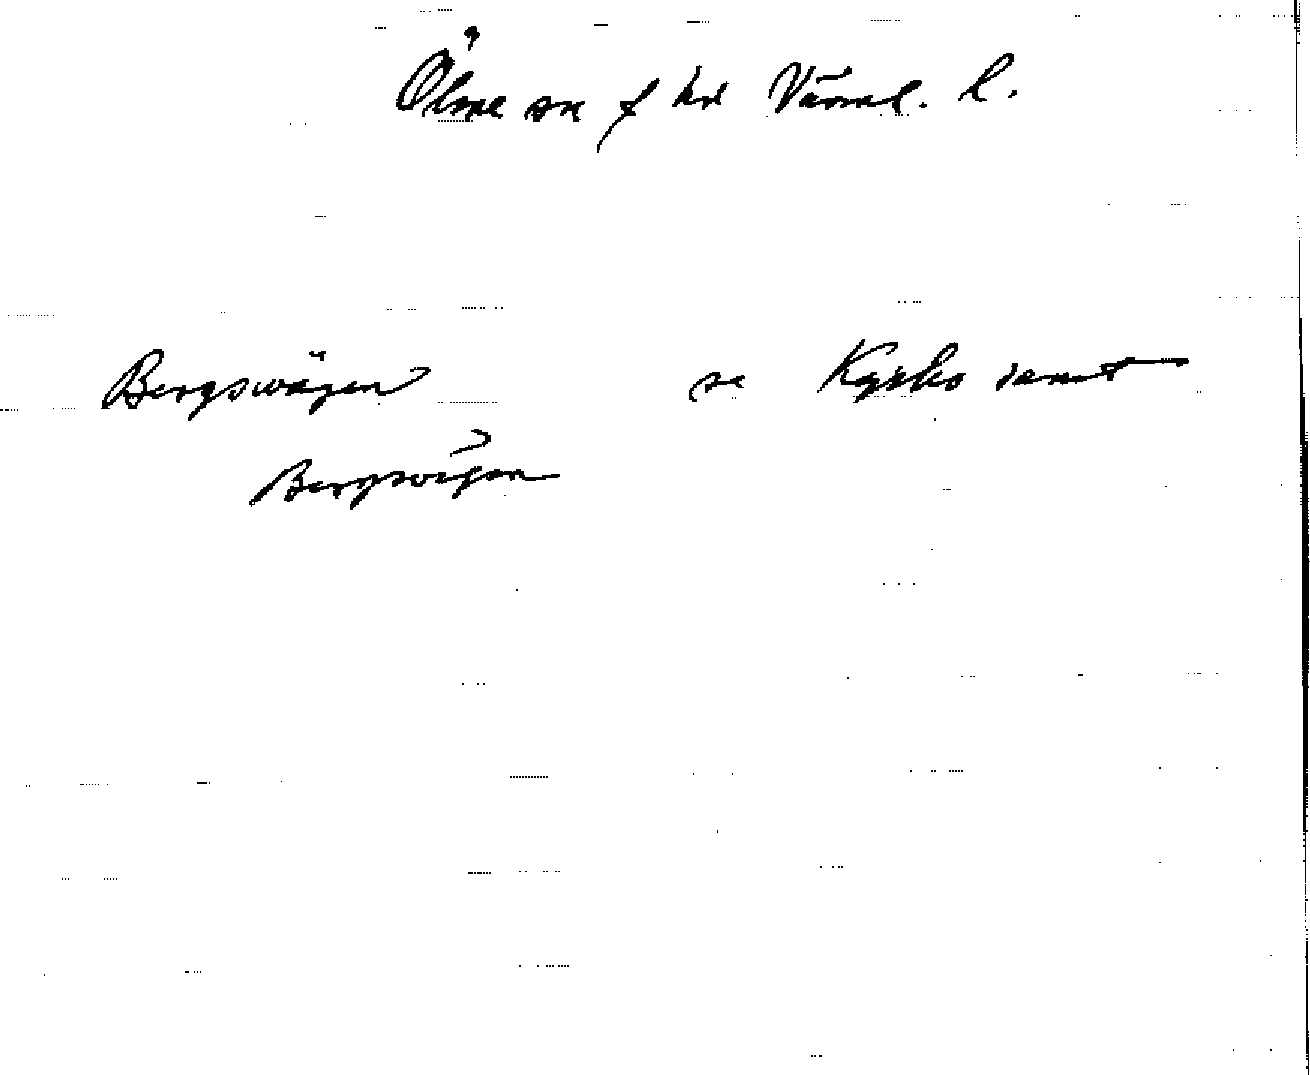 Ölme sn f hd Värml. l.
Bergsvägen se Kyrko samt
Bergsvägen